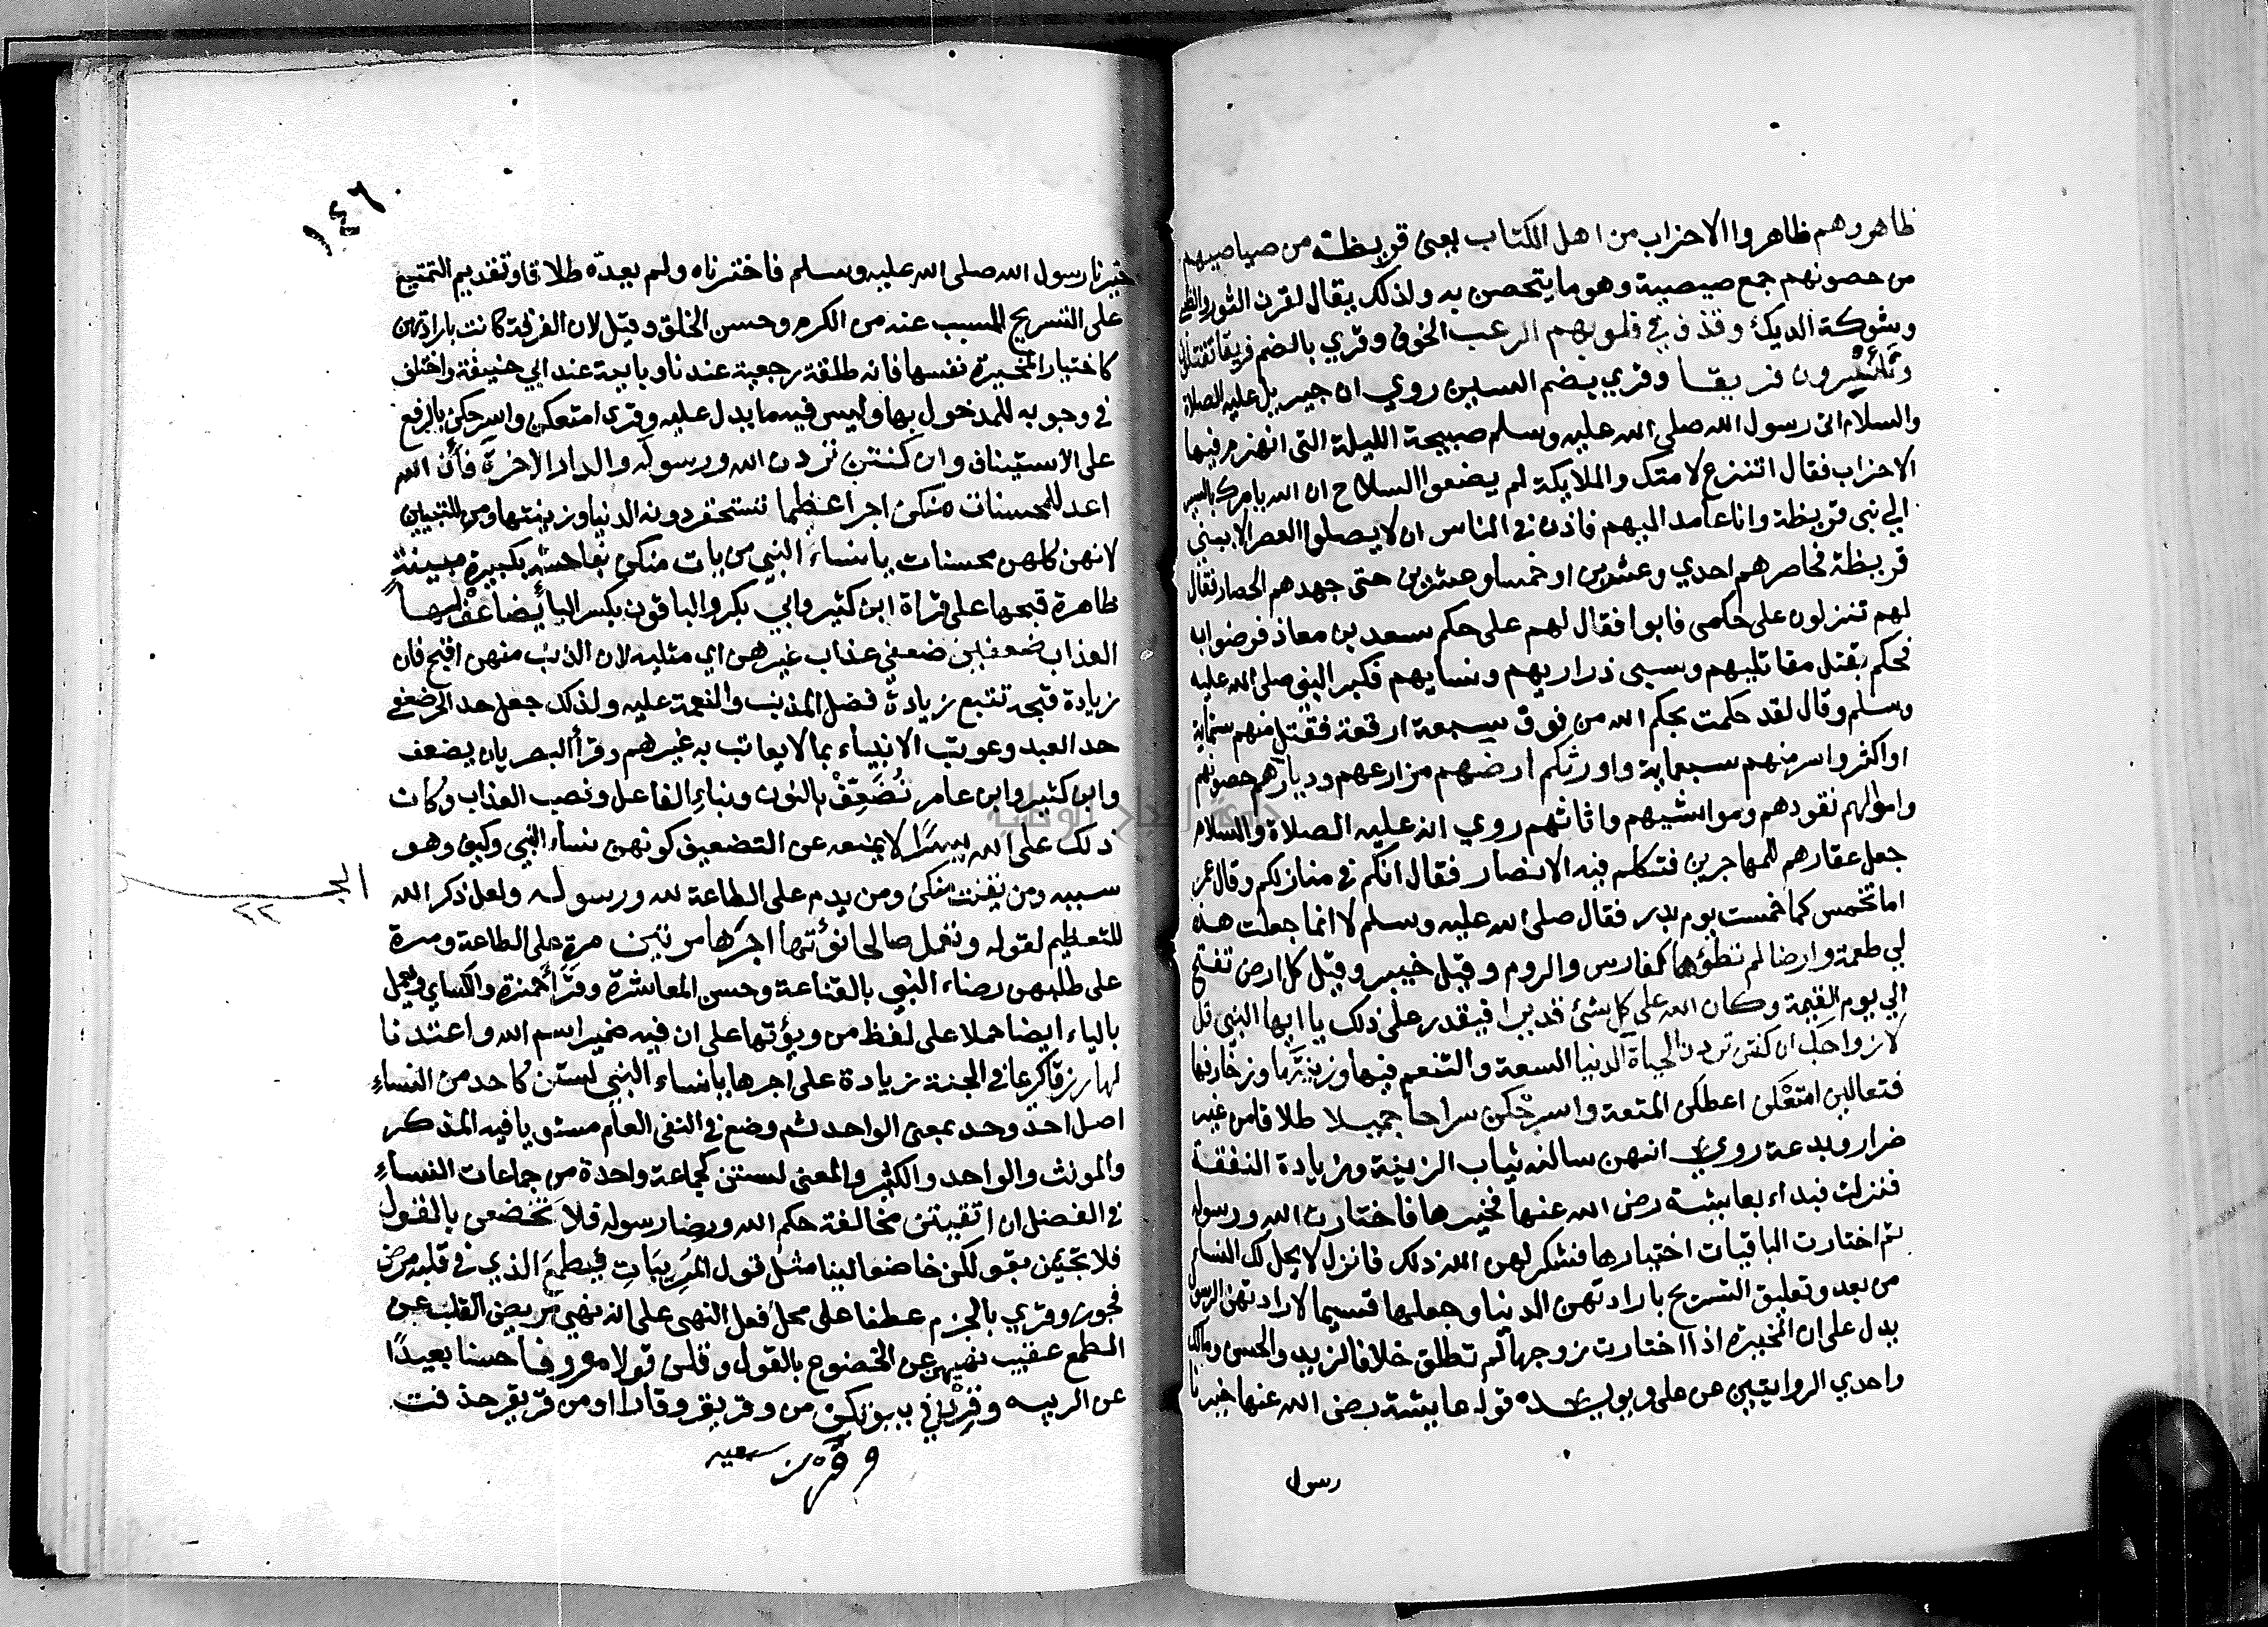 ظاهروهم ظاهروا الاحزاب من اهل الكتاب يعنى قريظة من صياصيهم
من حصونهم جمع صيصية وهو ما يتحصن به ولذلك يقال لقرن الثور والظبي
وشوكة الديك وقذف في قلوبهم الرعب الخوف وقري بالضم فريقا تقتلون
وتأسرون فريقا وقري بضم السين روي ان جبريل عليه الصلاة
والسلام اتى رسول الله صلى الله عليه وسلم صبيحة الليلة التى انهزم فيها
الاحزاب فقال اتنزع لامتك والملايكة لم يضعوا السلاح ان الله يامرك بالسير
الي بنى قريظة وانا عامد اليهم فاذن في الناس ان لا يصلوا العصر الا ببني
قريظة فحاصرهم احدي وعشرين او خمسا وعشرين حتى جهدهم الحصار فقال
لهم تنزلون على حكمى فابوا فقال لهم على حكم سعد بن معاذ فرضوا به
فحكم بقتل مقاتليهم وسبى ذراريهم ونسايهم فكبر النبي صلى الله عليه
وسلم وقال لقد حكمت بحكم الله من فوق سبعة ارقعة فقتل منهم ستماية
او اكثر واسر منهم سبعماية واورثكم ارضهم مزارعهم وديارهم حصونهم
واموالهم نقودهم ومواشيهم واثاثهم روي انه عليه الصلاة والسلام
جعل عقارهم للمهاجرين فتكلم فيه الانصار فقال انكم في منازلكم وقال عمر
اما تخمس كما خمست يوم بدر فقال صلى الله عليه وسلم لا انما جعلت هذه
لي طعمة وارضا لم تطؤها كفارس والروم وقيل خيبر وقيل كل ارض تفتح
الي يوم القيمة وكان الله على كل شئ قديرا فيقدر على ذلك يا ايها النبي قل
لازواجك ان كنتن تردن الحياة الدنيا السعة والتنعم فيها وزينتها وزخارفها
فتعالين امتعكن اعطكن المتعة واسرحكن سراحا جميلا طلاقا من غير
ضرار وبدعة روي انهن سالنه ثياب الزينة وزيادة النفقة
فنزلت فبداء بعايشة رضى الله عنها فخيرها فاختارت الله ورسوله
ثم اختارت الباقيات اختيارها فشكر لهن الله ذلك فانزل لا يحل لك النساء
من بعد وتعليق التسريح بارادتهن الدنيا وجعلها قسيما لارادتهن الرسول
يدل على ان المخيرة اذا اختارت زوجها لم تطلق خلافا لزيد والحسن ومالك
واحدي الروايتين عن على ويويده قوله عايشة رضى الله عنها خيرنا
رسول
١٤٦
خيرنا رسول الله صلى الله عليه وسلم فاخترناه ولم يعده طلاقا وتقديم التمتيع
على التسريح المسبب عنه من الكرم وحسن الخلق وقيل لان الفرقة كانت بارادتهن
كاختيار المخيرة نفسها فانه طلقة رجعية عندنا وباينة عند ابي حنيفة واختلف
في وجوبه للمدخول بها وليس فيه ما يدل عليه وقرى امتعكن واسرحكن بالرفع
على الاستيناف وان كنتن تردن الله ورسوله والدار الاخرة فان الله
اعد للمحسنات منكن اجرا عظيما تستحقر دونه الدنيا وزينتها ومن للتبيين
لانهن كلهن محسنات يا نساء النبي من يات منكن بفاحشة بكبيرة مبينة
ظاهرة قبحها على قراة ابن كثير وابي بكر والباقون بكسر اليا يضاعف لها
العذاب ضعفين ضعفي عذاب غيرهن اي مثليه لان الذنب منهن اقبح فان
زيادة قبحه تتبع زيادة فضل المذنب والنعمة عليه ولذلك جعل حد الحر ضعفي
حد العبد وعوتب الانبياء بما لا يعاتب به غيرهم وقرأ البصريان يضعف
وابن كثير وابن عامر نُضَعِّفْ بالنون وبناء الفاعل ونصب العذاب وكان
ذلك على الله يسيرًا لا يمنعه عن التضعيف كونهن نساء النبي وكيف وهو
سببه ومن يقنت منكن ومن يدم على الطاعة لله ورسوله ولعل ذكر الله
الجـ
٢٢
للتعظيم لقوله وتعمل صالحا نؤتها اجرها مرتين مرة على الطاعة ومرة
على طلبهن رضاء النبي بالقناعة وحسن المعاشرة وقرأ حمزة والكساي ويعمل
بالياء ايضا حملا على لفظ من ويؤتها على ان فيه ضمير اسم الله واعتدنا
لها رزقا كريما في الجنة زيادة على اجرها يا نساء النبي لستن كاحد من النساءِ
اصل احد وحد بمعنى الواحد ثم وضع في النفى العام مستويا فيه المذكر
والمونث والواحد والكثير والمعنى لستن كجماعة واحدة من جماعات النساءِ
في الفضل ان اتقيتن مخالفة حكم الله ورضا رسوله فلا تخضعن بالقول
فلا تجئن بقولكن خاضعا لينا مثل قول المريبات فيطمع الذي في قلبه مرض
فجور وقري بالجزم عطفا على محل فعل النهى على انه نهي مريض القلب عن
الطمع عقيب نهيهن عن الخضوع بالقول وقلن قولا معروفا حسنا بعيدًا
عن الريبه وقرن في بيوتكن من وقر يقر وقارا او من قر يقر حذفت